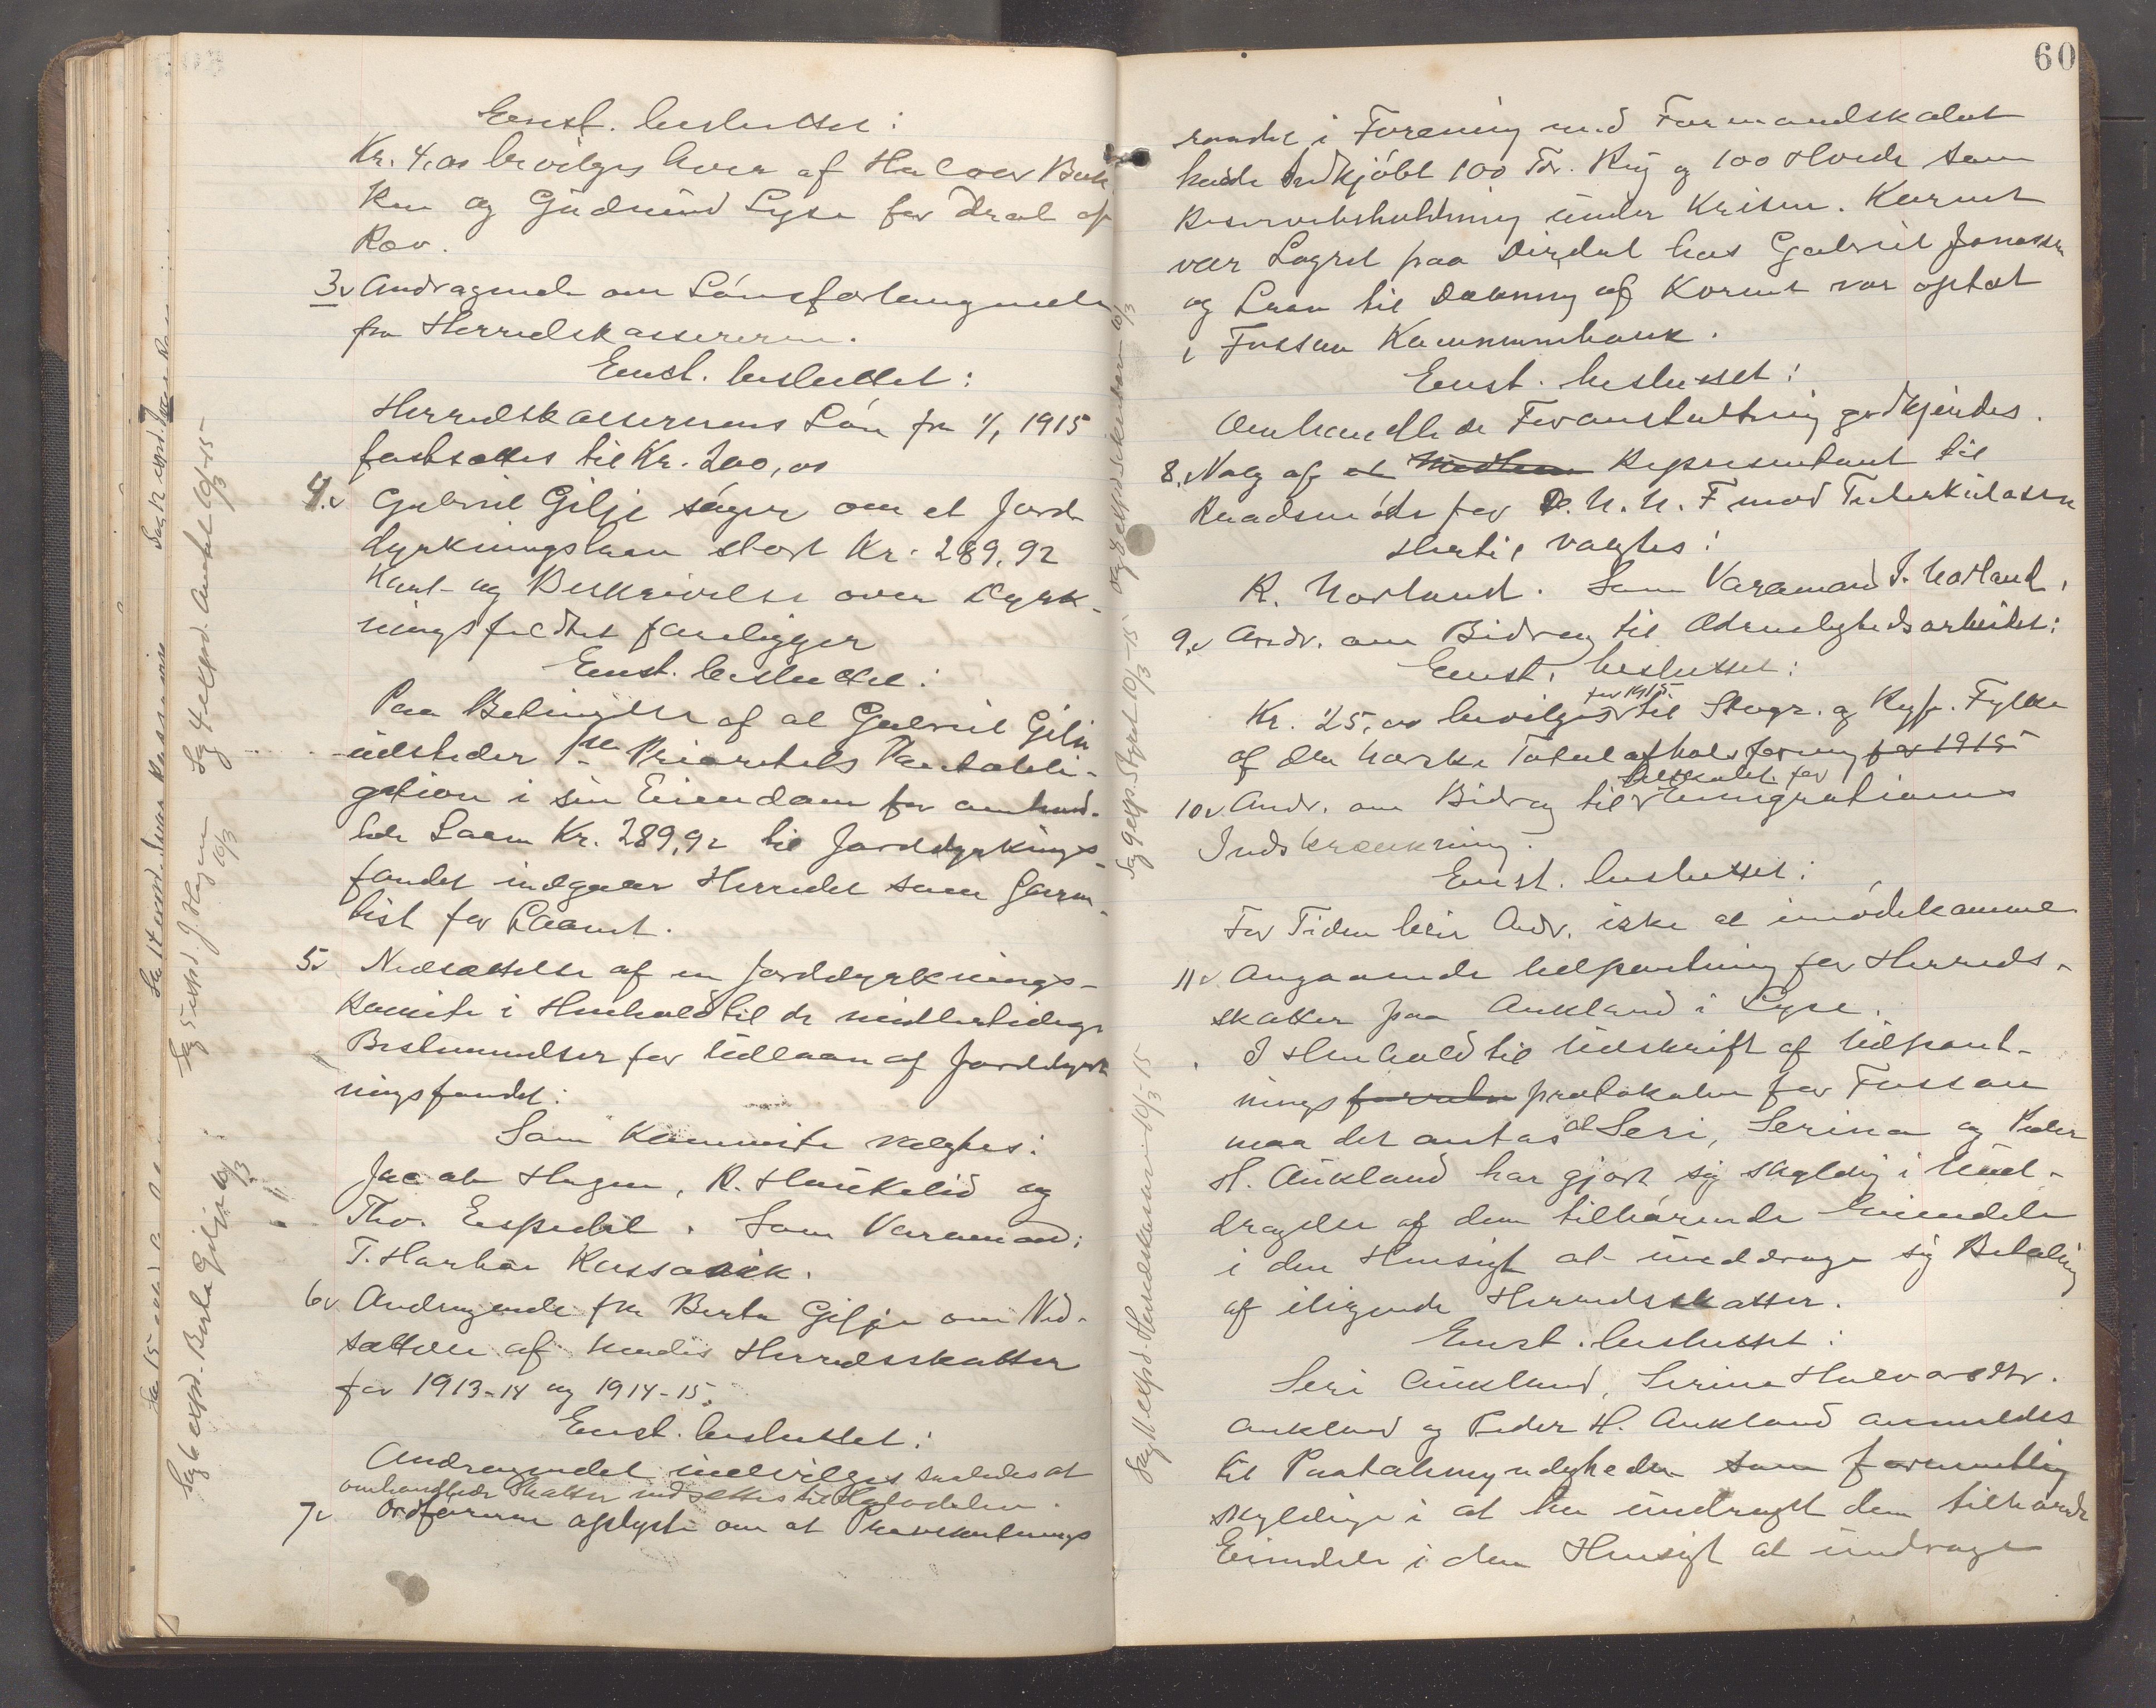 Enst. besluttet:
Kr. 4,00 bevilges hver af Halvor Bak
ken og Gudmund Lyse for Drab af
Ræv.
3. Andragende om Lønsforlængnede
fra Herredskassereren.
Enst. besluttet:
Herredskassererens Løn fra 1/1 1915
fastsættes til Kr. 200,00
4. Gabriel Gilje søger om et Jord
dyrkningslaan stort Kr. 289,92
Kart- og Beskrivelse over Dyrk-
ningsfeldtet foreligger
Enst. besluttet:
Paa Betingelse af at Gabriel Gilje
udsteder 1ste Prioritets Pantobli-
gation i sin Eiendom for omhand-
lede Laan Kr. 289,92 til Jorddyrknings-
fondet indgaar Herredet som Garan-
tist for Laanet.
5. Nedsættelse af en Jorddyrknings-
komite i Henhold til de midlertidige
Bestemmelser for Udlaan af Jorddyrk
ningsfondet:
Som Kommite valgtes:
Jacob Hagen, R. Haukelid og
Tho. Espedal. Som Varamænd:
T. Harbør Kassavik.
6. Andragende fra Berta Gilje om Ned-
sættelse af hendes Herredsskatter
for 1913-14 og 1914-15.
Enst. besluttet:
Andragendet indvilges saaledes at
omhandlede Skatter nedsættes til Halvdelen.
7. Ordføreren oplyste om at Provianterings
60
raadet i Forening med Formandskabet
havde Indkjøbt 100 Tdr. Rug og 100 Hvede som
Reservebeholdning under Krisen. Kornet
var Lagret paa Dirdal hos Gabriel Jonassen
og Laan til Dækning af Kornet var optat
i Fossan Kommunebank.
Enst. besluttet:
Omhandlede Foranstaltning godkjendes.
8. Valg af et Medlem Representant til
Raadsmøde for D. N. N. F mod Tuberkulosen
Hertil valgtes:
R. Norland. Som Varamand I. Norland.
9. Andr. om Bidrag til Ædruelighedsarbeidet:
Enst. besluttet:
Kr. 25,00 bevilges for 1915 til Stvgr. og Ryf. Fylke
af den Norske Totalafholdsforening for 1915
10. Andr. om Bidrag til Selskabet for Emigrationens
Indskrænkning.
Enst. besluttet:
For Tiden blir Andr. ikke at imødekomme
11. Angaaende Udpantning for Herreds-
skatter paa Aukland i Lyse.
I Henhold til Udskrift af Udpant-
nings forretn protokolen for Fossan
maa det antas at Seri, Serina og Peder
H. Aukland har gjort sig skyldig i Und-
dragelse af dem tilhørende Eiendele
i den Hensigt at unddrage sig Betaling
af iligende Herredsskatter.
Enst. besluttet:
Seri Aukland, Serine Halvorsdtr.
Aukland og Peder H. Aukland anmeldes
til Paatalemyndigheden som formentlig
skyldige i at ha undragt dem tilhørende
Eiendele i den Hensigt at undrage
Sag 4 expd. Anmodet 10/3-15
Sag 5 expd. J. Hagen 10/3
Sag 6 expd. Berta Gilje 10/3
Sag 8 expd. Sekretæren 10/3
Sag 9 exp. Styret 10/3-15
Sag 11 expd. Herredskassereren 10/3-15